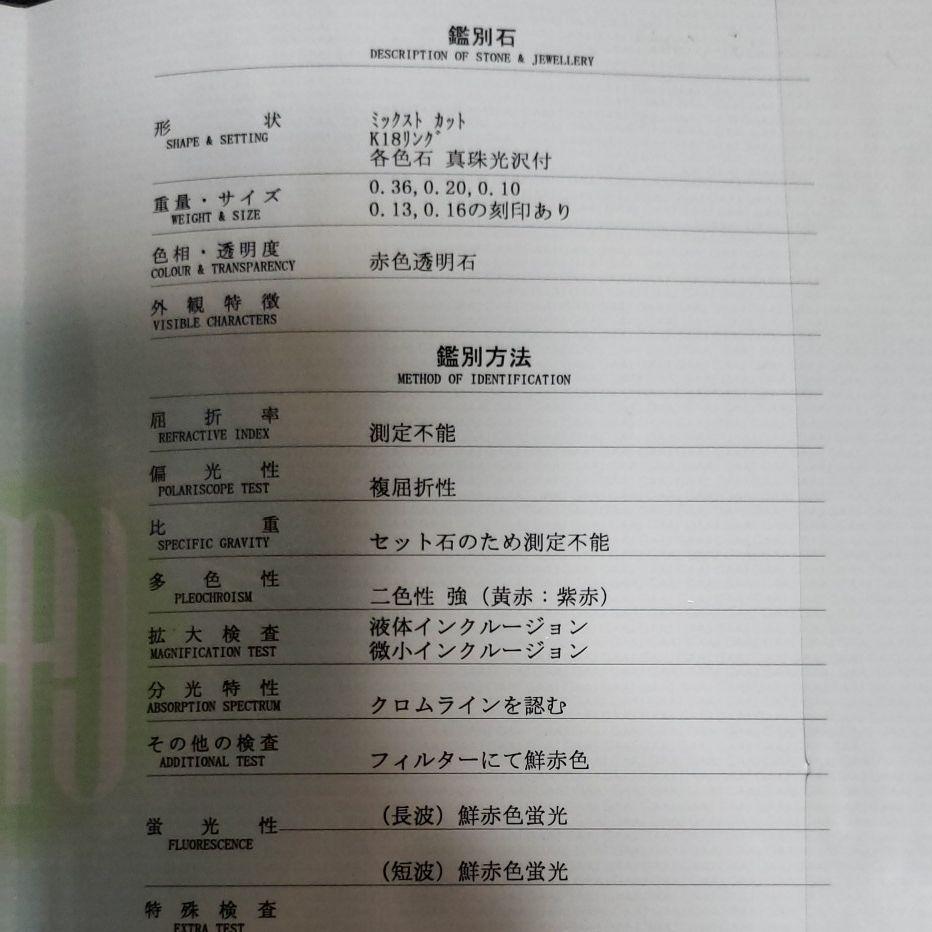 鑑別石
DESCRIPTION OF STONE & JEWELLERY
形 状
SHAPE & SETTING
ﾐｯｸｽﾄ ｶｯﾄ
K18ﾘﾝｸﾞ
各色石 真珠光沢付
重量・サイズ
WEIGHT & SIZE
0.36,0.20,0.10
0.13,0.16の刻印あり
色相・透明度
COLOUR & TRANSPARENCY
赤色透明石
外観特徴
VISIBLE CHARACTERS
鑑別方法
METHOD OF IDENTIFICATION
屈折率
REFRACTIVE INDEX
測定不能
偏光性
POLARISCOPE TEST
複屈折性
比重
SPECIFIC GRAVITY
セット石のため測定不能
多色性
PLEOCHROISM
二色性 強（黄赤：紫赤）
拡大検査
MAGNIFICATION TEST
液体インクルージョン
微小インクルージョン
分光特性
ABSORPTION SPECTRUM
クロムラインを認む
その他の検査
ADDITIONAL TEST
フィルターにて鮮赤色
蛍光性
FLUORESCENCE
（長波）鮮赤色蛍光
（短波）鮮赤色蛍光
特殊検査
EXTRA TEST